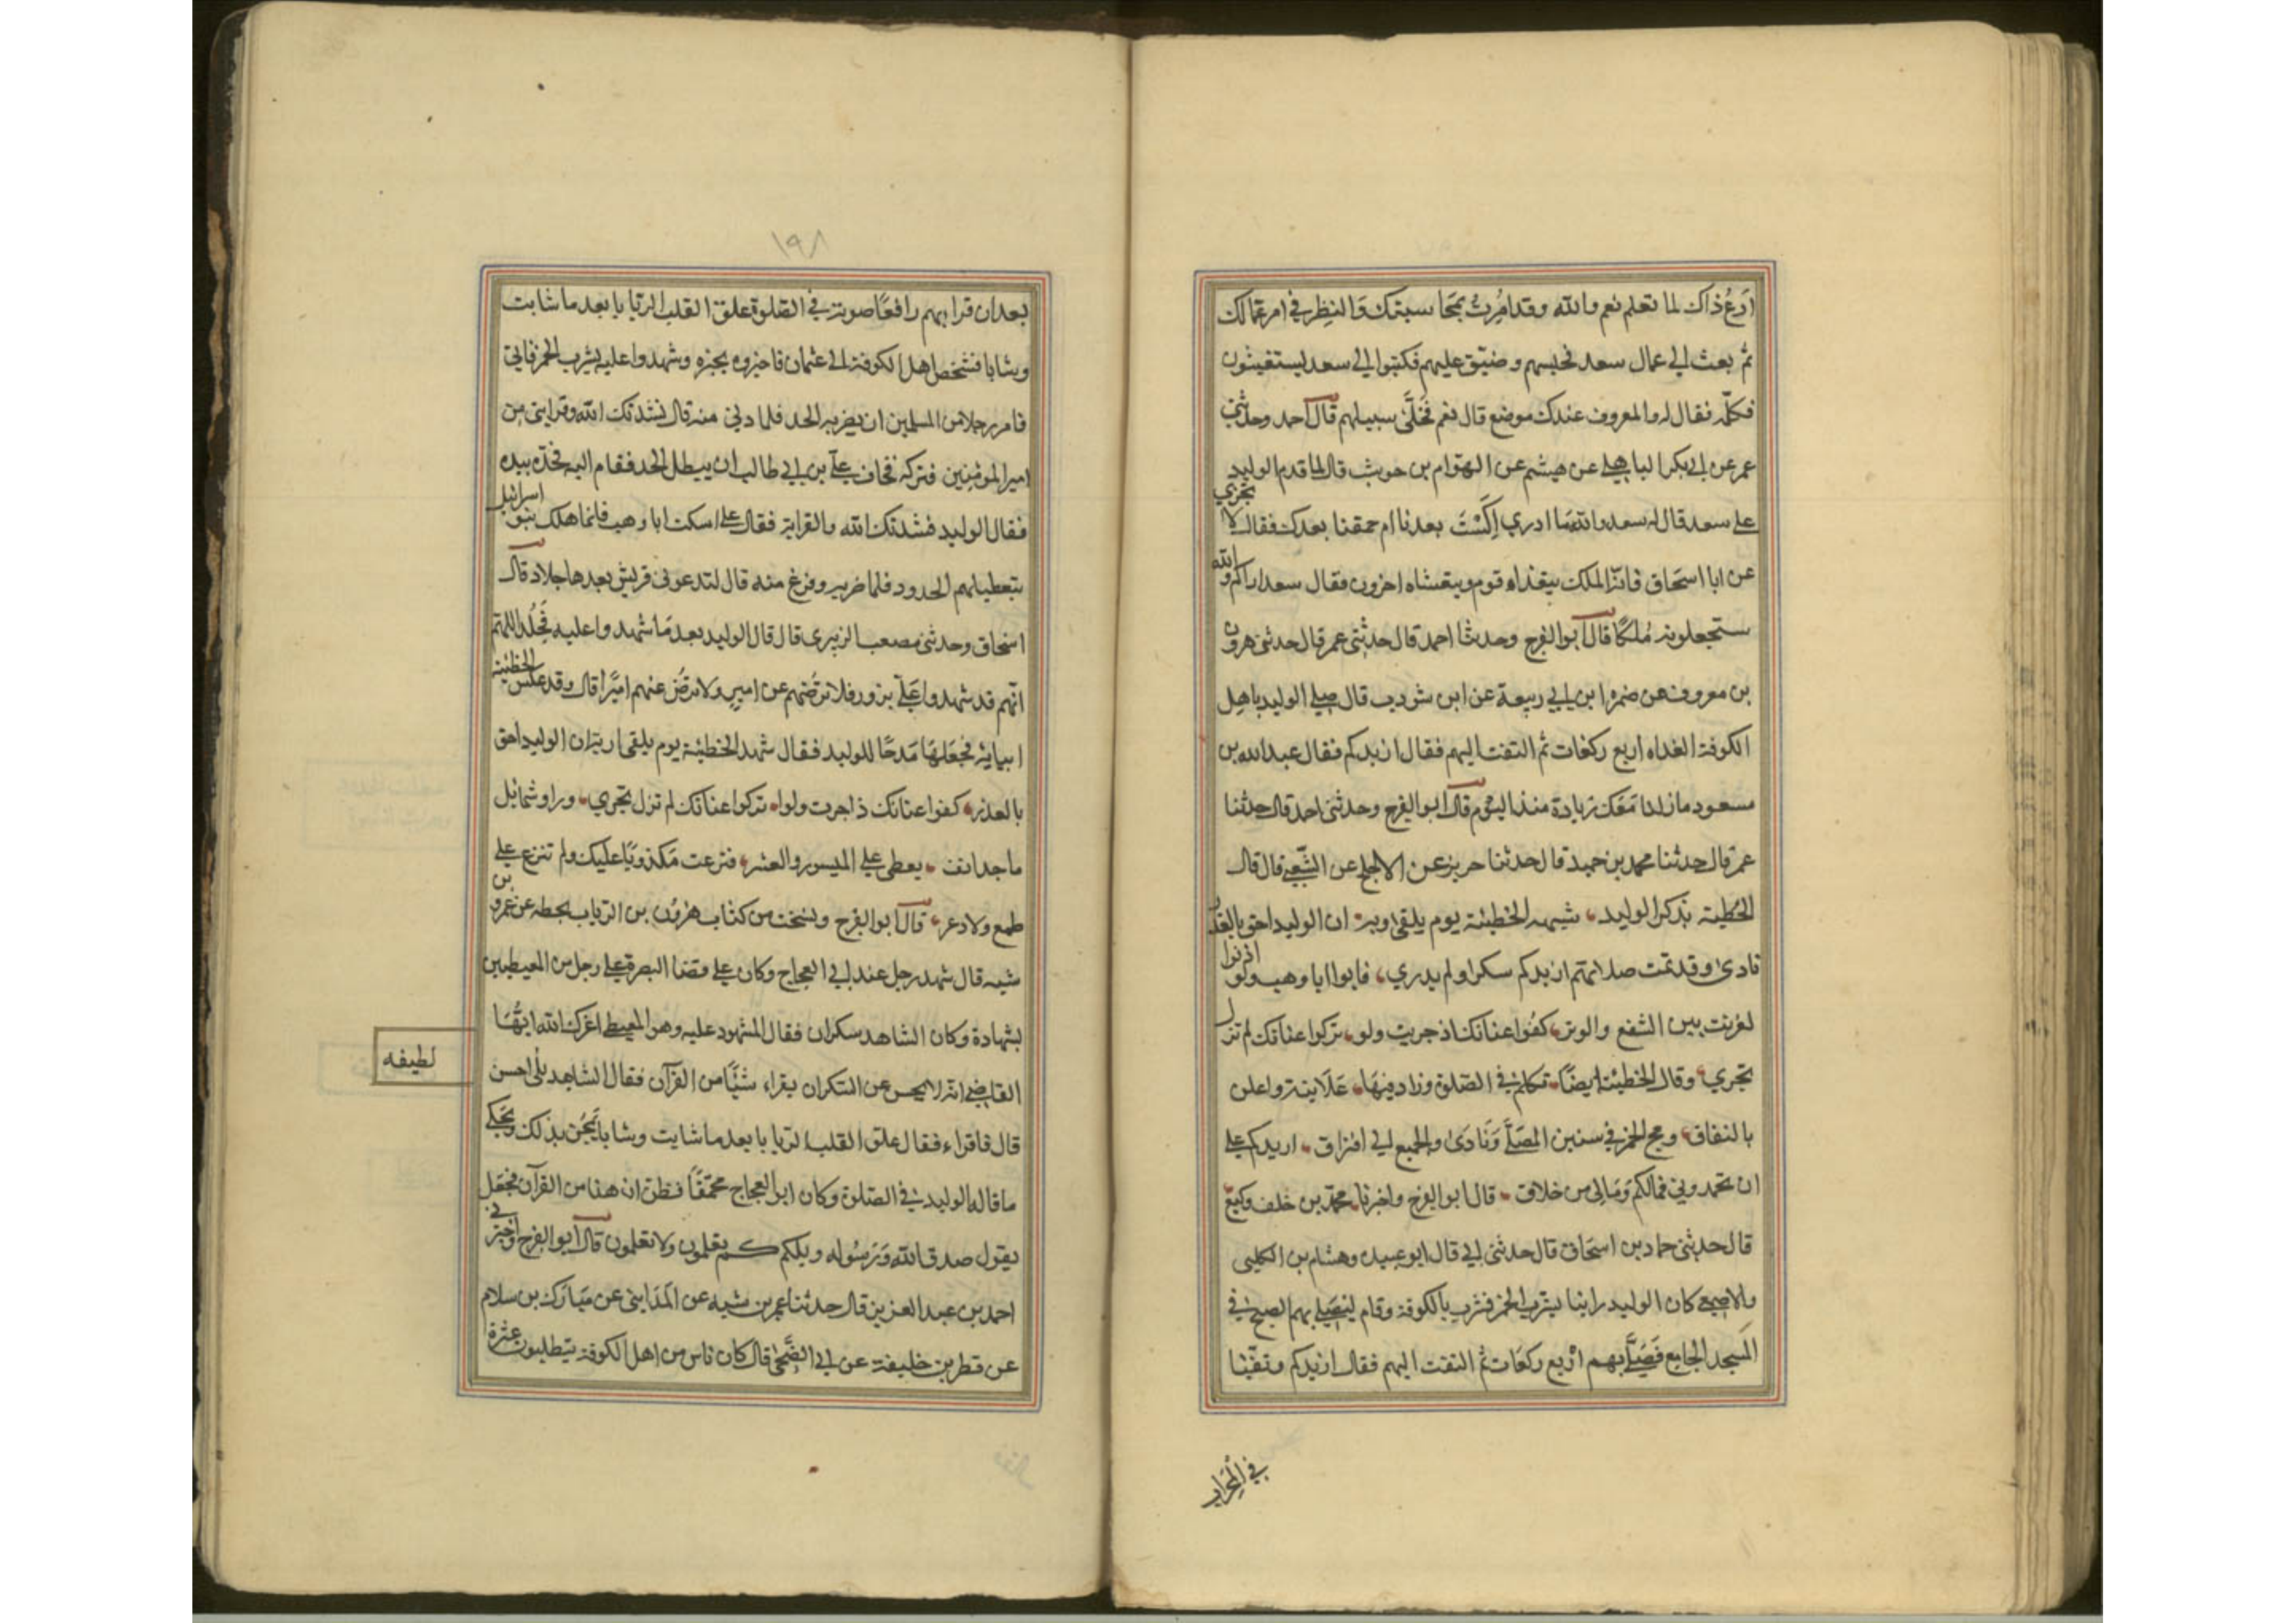 اَوَعُ ذاك لما تعلم نعم والله وقد امُرِتُ بمحاسبتك والنظر في امر عمالك
ثم بعث الي عمال سعد فحبسهم وضيّق عليهم فكتبوا الي سعد يستغيثون
فكلّمه فقال له والمعروف عندك موضع قال نعم فخَلَّى سبيلهم قال احمد وحدثني
عمر عن ابي بكر الباهلي عن هيشم عن العوام بن حوشب قال لما قدم الوليد
علي سعد قال له سعد والله ما ادري اَكِسْتَ بعدنا ام حمقنا بعدك فقال لا تجزعن
ابا اسحاق فانّما الملك يتغذاه قوم ويتعشاه اخرون فقال سعد اراكم والله
ستجعلونه مُلكًا قال ابو الفرج وحدثنا احمد قال حدثني عمر قال حدثني هرون
بن معروف عن ضمره ابن ابي ربيعة عن ابن شودب قال صلي الوليد باهل
الكوفة الغداه اربع ركعات ثم التفت اليهم فقال ازيدكم فقال عبد الله بن
مسعود ما زلنا مَعَك في زيادة منذ اليوم قال ابو الفرج وحدثني احمد قال حدثنا
عمر قال حدثنا محمد بن حميد قال حدثنا حريز عن الاجلح عن الشّعبي قال قال
الحُطيئة يذكر الوليد شهد الحطيئة يوم يلقي ربه ان الوليد احق بالعذر
نادى وقد تمت صلاتهم ازيدكم سكرا ولم يدري فابوا ابا وهب ولو اذنوا
لقرنت بين الشفع والوتر كفُوا عنانك اذ جريت ولو تركوا عنانك لم تزل
تجري وقال الحطيئة ايضًا تكلم في الصّلوة وزاد فيها عَلَانيةً واعلن
بالنفاق ومج الخمر في سنن المصَلَّى وَنَادَى والجميع الي افتراق ازيدكم علي
ان تحمدوني فمالكم وَمَالي من خلاق قال ابو الفرج واخبرنا محمد بن خلف وكيع
قال حدثني حماد بن اسحاق قال حدثني ابي قال ابو عبيده وهشام بن الكلبي
والاصمعي كان الوليد زانيا يشرب الخمر فشرب بالكوفة وقام ليصلي بهم الصبح في
المسجد الجامع فَصَلَّى بهم اربع ركعات ثم التفت اليهم فقال ازيدكم وتقيّئا
في المحراب
١٩٨
بعد ان قرا بهم رافعًا صوته في الصّلوة علق القلب الربابا بعد ما شابت
وشابا فشخص اهل الكوفة الي عثمان فاخبروه بخبره وشهدوا عليه بشرب الخمر فاتي
فامر رجلا من المسلمين ان يضربه الحد فلما دني منه قال نشدتك الله وقرابتي من
امير المومنين فتركه فخاف علي بن ابي طالب ان يبطل الحد فقام اليه فحدّه بيده
فقال الوليد نشدتك الله والقرابة فقال علي اسكت ابا وهب فانما هلك بنو اسرائيل
بتعطيلهم الحدود فلما ضربه وفرغ منه قال لتدعوني قريش بعدها جلاد قال
اسحاق وحدثني مصعب الزبيري قال قال الوليد بعد مَا شهدوا عليه فَجُلد اللهم
انّهم قد شهدوا عليّ بزور فلا ترضهم عن امير ولا ترض عنهم اميرًا قال وقد عكس الحطيئة
ابياته فجعَلهَا مَدحًا للوليد فقال شهد الحطيئة يوم يلقي ربه ان الوليد احق
بالعذر كفوا عنانك اذ اجريت ولوا تركوا عنانك لم تزل تجري وراو شمائل
ماجد انف يعطي علي الميسور والعسر فنزعت مَكذوبًا عليك ولم تنزع علي
طمع ولا دعر قال ابو الفرج ونسخت من كتاب هارون بن الرباب بخطه عن عمرو بن
شبه قال شهد رجل عند ابي العجاج وكان علي قضا البصرة علي رجل من المعيطيين
بشهادة وكان الشاهد سكران فقال المشهود عليه وهو المعيطي اعزك الله ايّهَا
القاضي انه لا يحسن من السكران يقراء شيئًا من القرآن فقال الشاهد بلى احسن
قال فاقراء فقال علق القلب الربابا بعد ما شابت وشابا يَمْجُن بذلك ويحكي
ما قاله الوليد في الصّلوة وكان ابو العجاج محمّقًا فظن ان هذا من القرآن فجعَل
يقول صدق الله وَرَسُوله ويلكم كم تعلمون ولا تعملون قال ابو الفرج اخبرني
احمد بن عبد العزيز قال حدثنا عمر بن شبه عن المَدَايني عن مبَارَك بن سلام
عن قطر بن خليفة عن ابي الضّحى قال كان ناس من اهل الكوفة يتطلبون عثرة
لطيفه